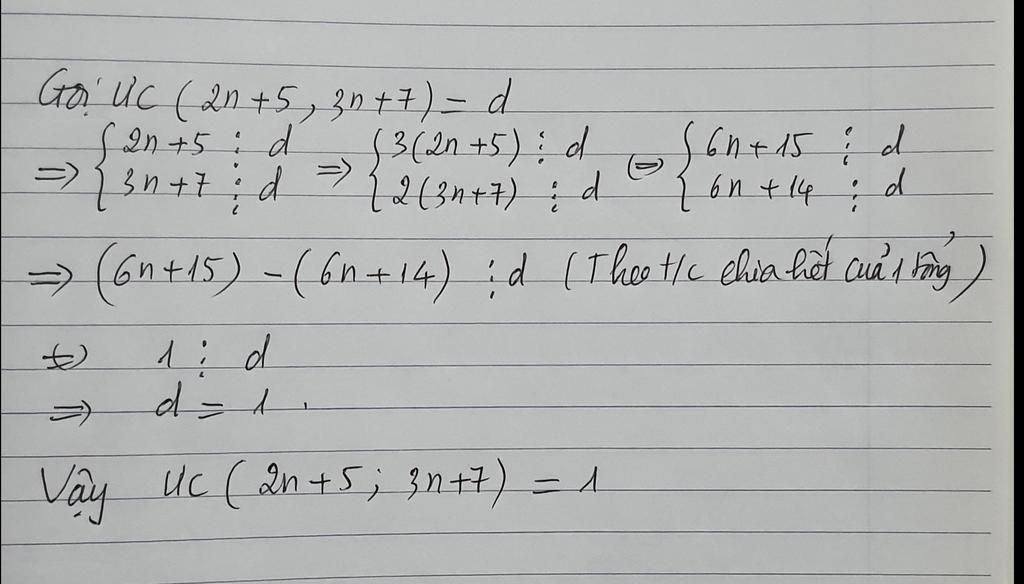 Gọi ƯC (2n+5, 3n+7) = d
=> { 2n+5 ⋮ d => { 3(2n+5) ⋮ d <=> { 6n+15 ⋮ d
3n+7 ⋮ d 2(3n+7) ⋮ d 6n+14 ⋮ d
=> (6n+15) - (6n+14) ⋮ d (Theo t/c chia hết cuả 1 tổng)
<=> 1 ⋮ d
=> d = 1.
Vậy ƯC (2n+5; 3n+7) = 1